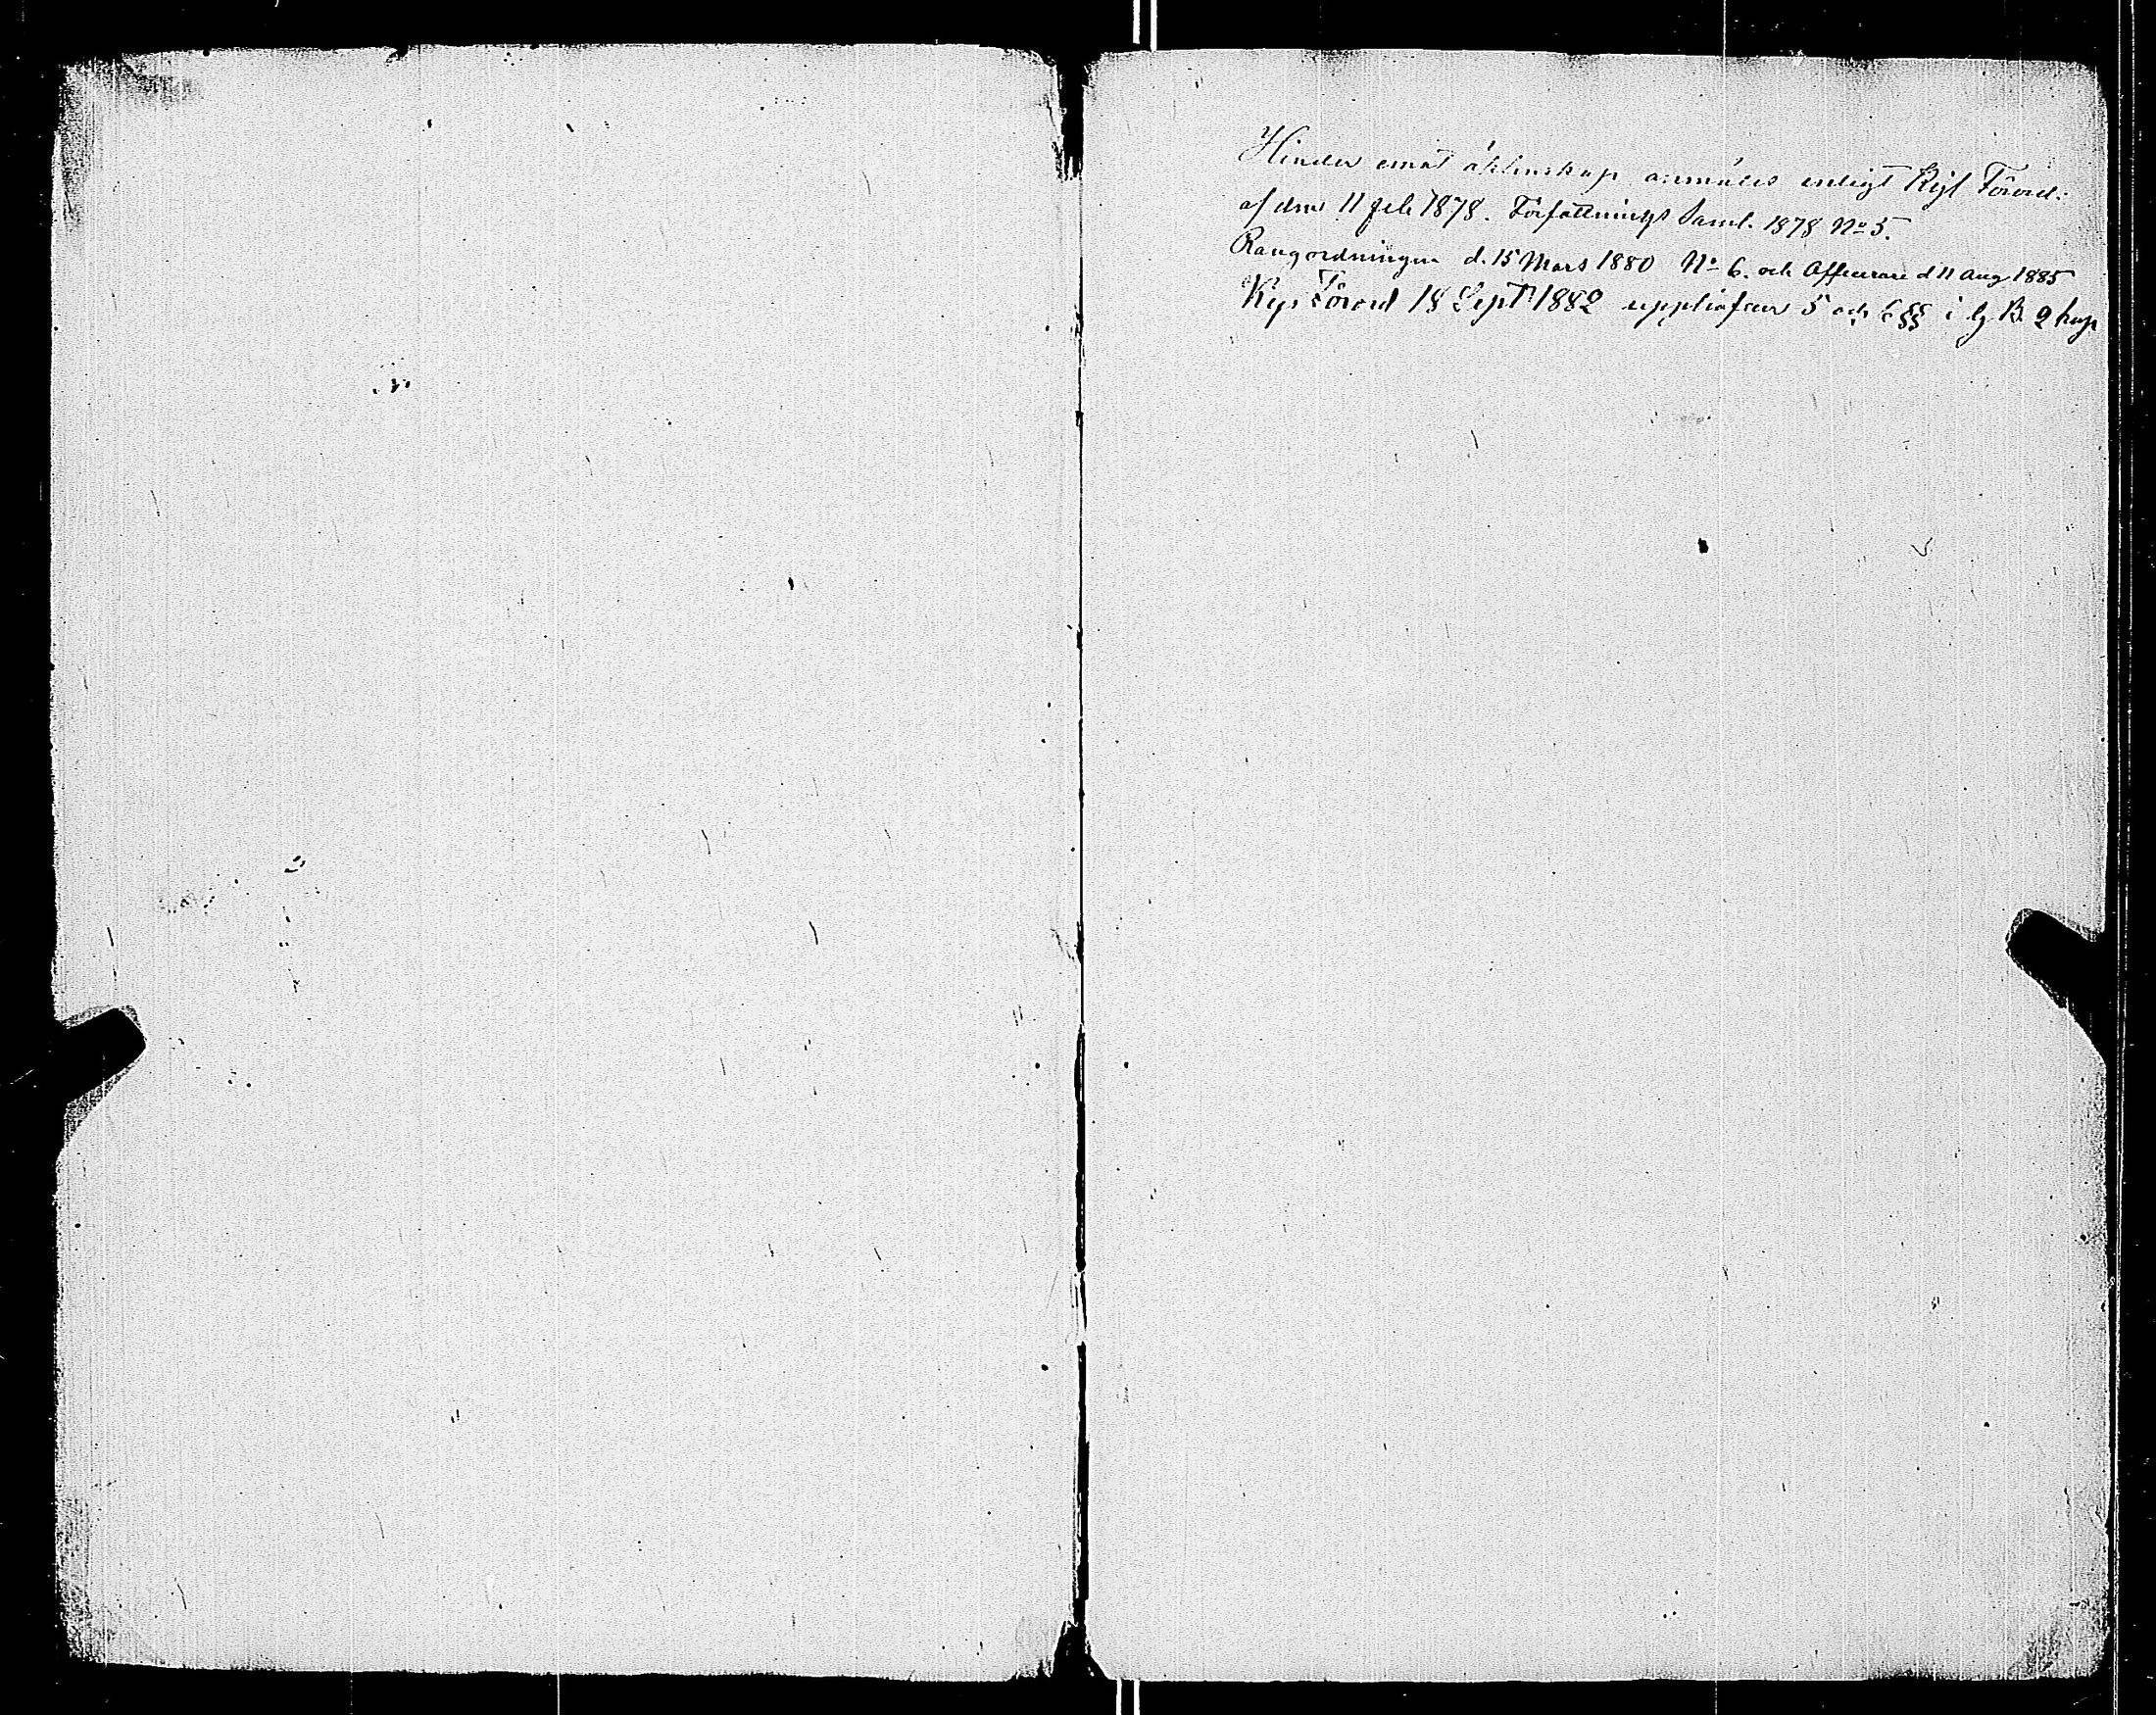 Hinder emot äktenskap anmäles enligt Kgl Förord:
af den 11 feb 1878. Författnings Saml. 1878 No 5.
Rangordningen d. 15 Mars 1880 No 6. och d 11 Aug 1885
Kgs Förord 18 Sept 1882 upphäfver 5 och 6 §§ i G B. 2 kap